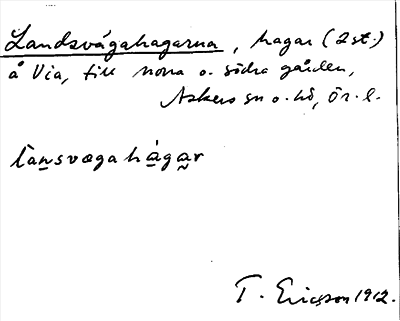 Landsvägahagarna, hagar (2 st.)
å Via, till norra o. södra gården,
Askers sn o. hd, Ör. l.
lansvægahágar
T. Ericsson 1912.